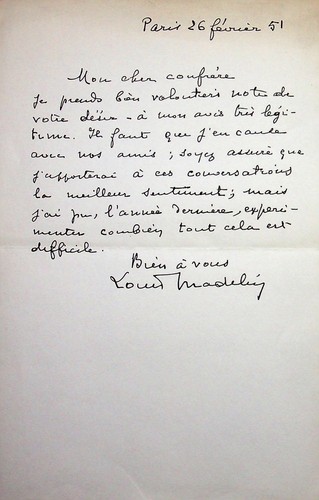 Paris 26 février 51
Mon cher confrère
Je prends bien volontiers note de
votre désir - à mon avis très légi-
time. Il faut que j'en cause
avec nos amis ; soyez assuré que
j'apporterai à ces conversations
la meilleur sentiment ; mais
j'ai pu, l'année dernière, expéri-
menter combien tout cela est
difficile.
Bien à vous
Louis Madelin